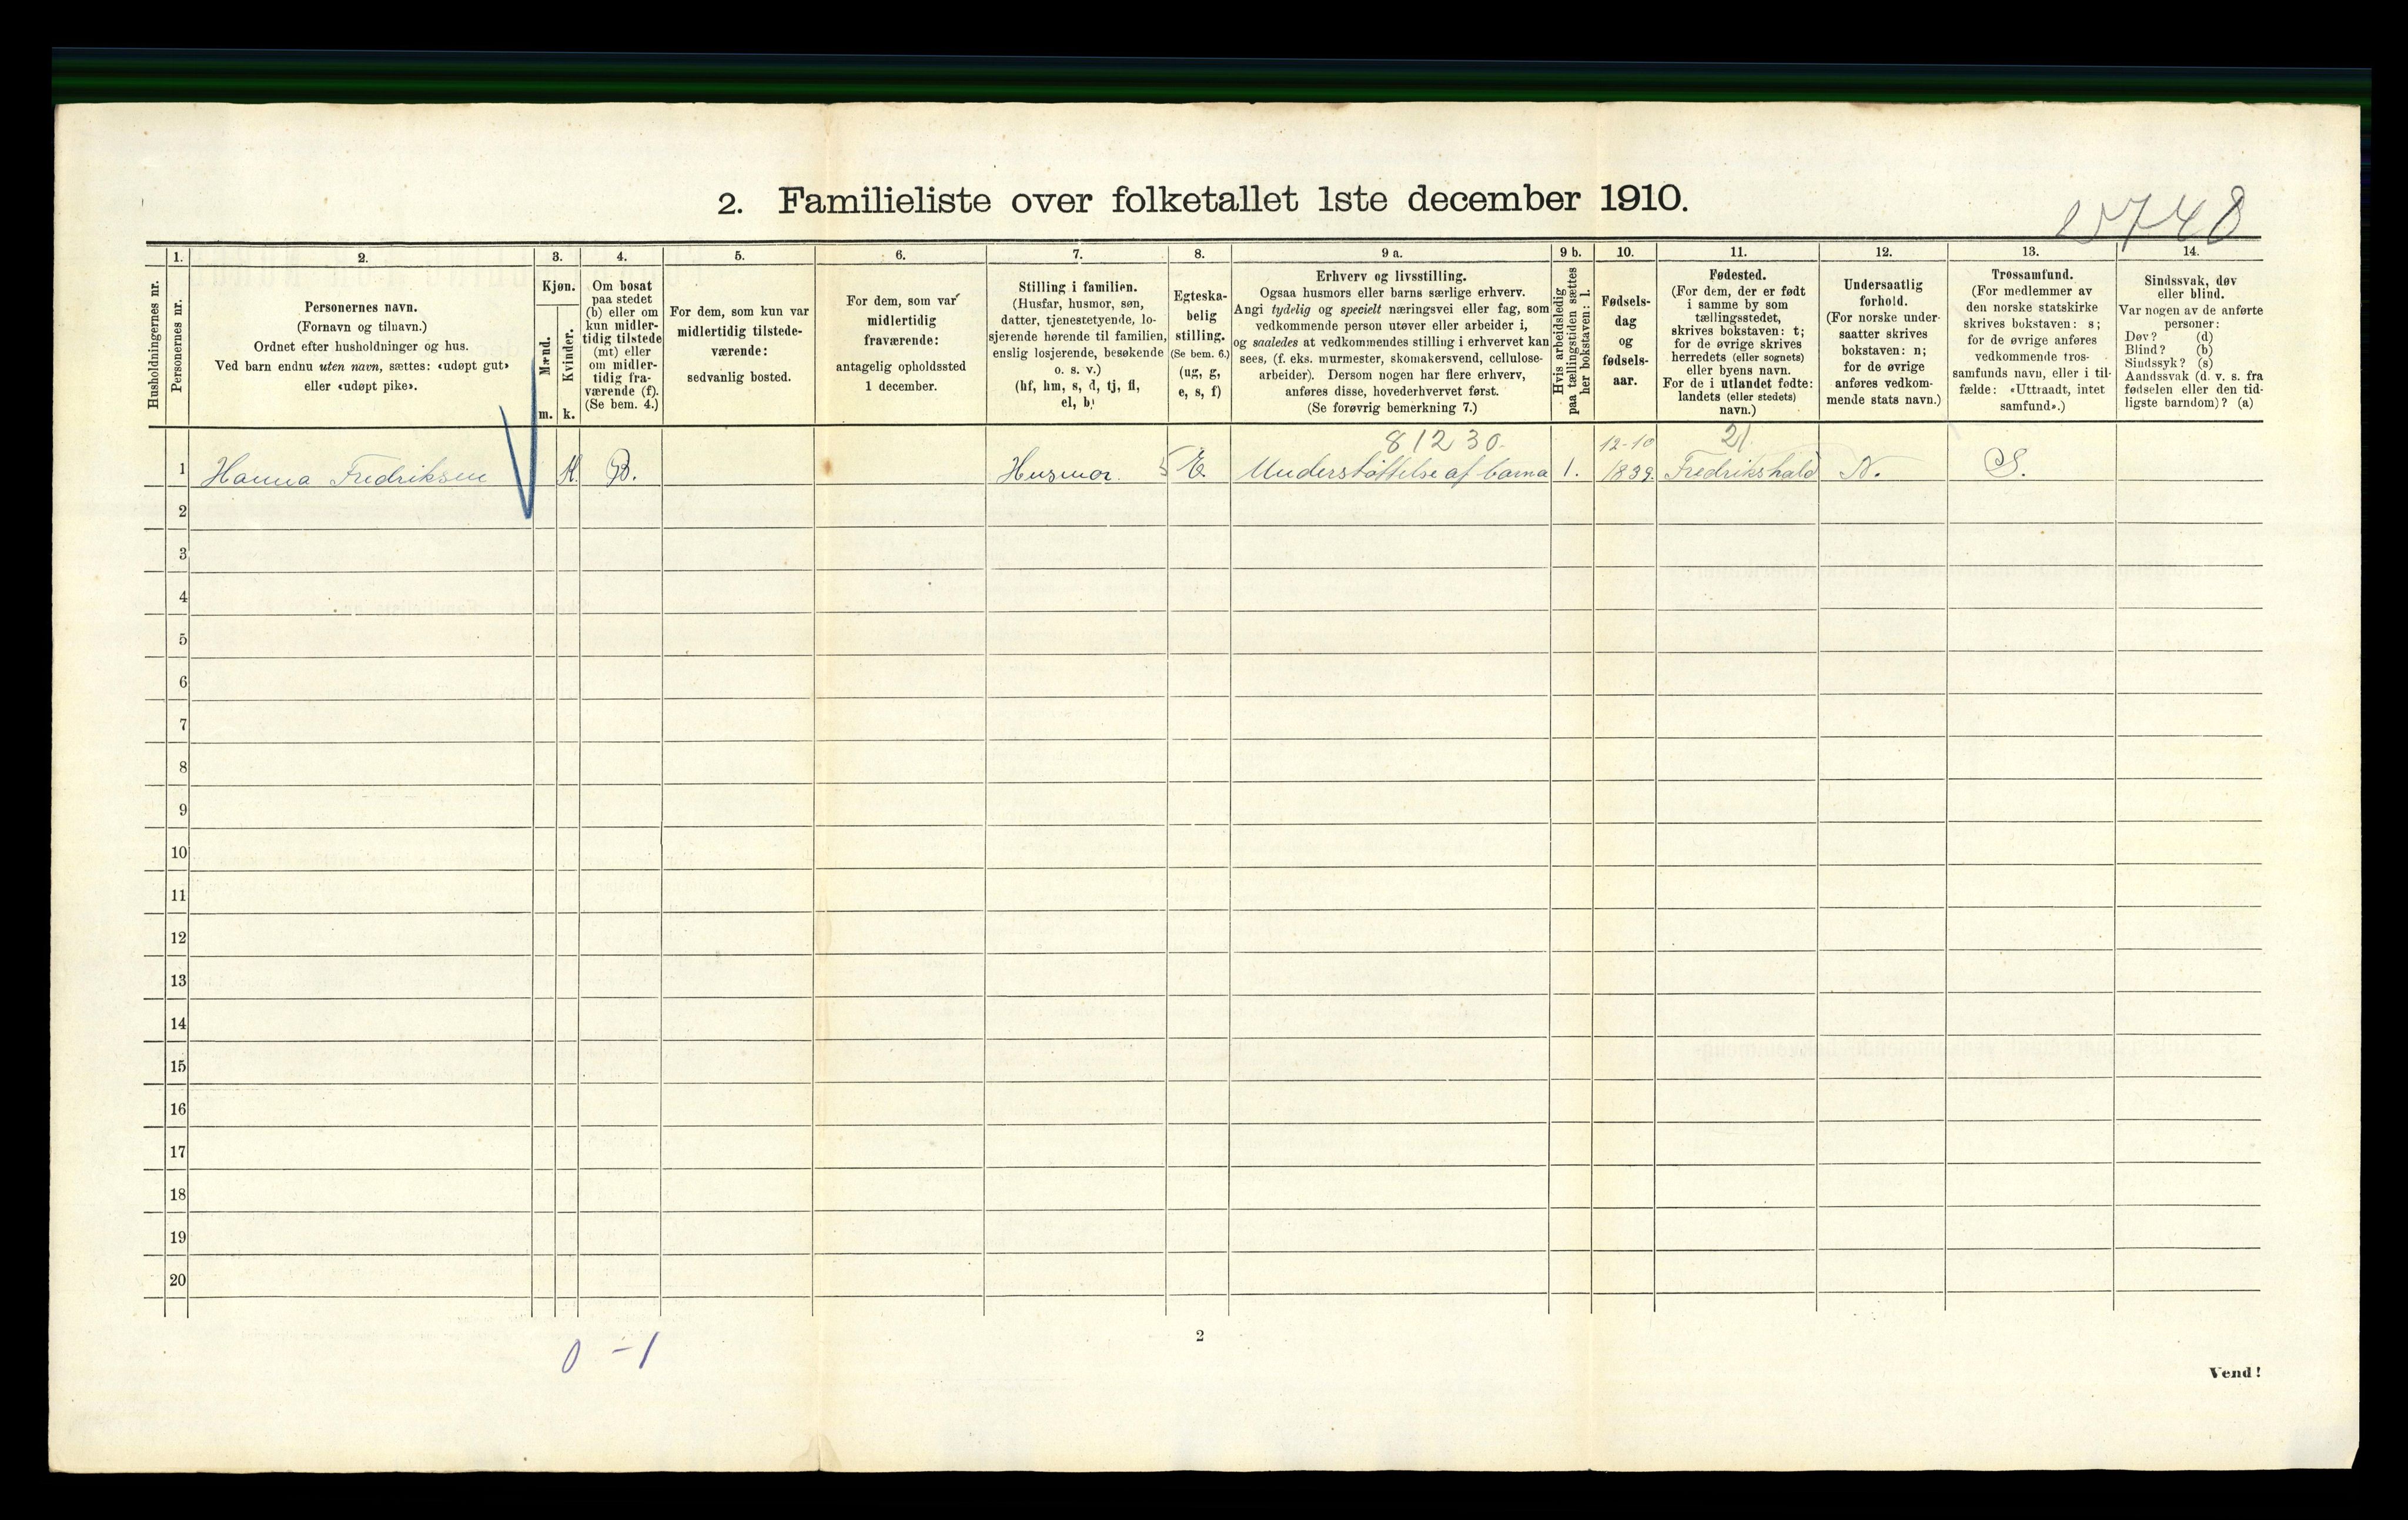 2. Familieliste over folketallet 1ste december 1910.
15748
Husholdningernes nr.
1.
Personernes nr.
2.
Personernes navn.
(Fornavn og tilnavn.)
Ordnet efter husholdninger og hus.
Ved barn endnu uten navn, sættes: «udøpt gut»
eller «udøpt pike».
3.
Kjøn.
Mænd.
m.
Kvinder.
k.
4.
Om bosat
paa stedet
(b) eller om
kun midler-
tidig tilstede
(mt) eller
om midler-
tidig fra-
værende (f).
(Se bem. 4.)
5.
For dem, som kun var
midlertidig tilstede-
værende:
sedvanlig bosted.
6.
For dem, som var
midlertidig
fraværende:
antagelig opholdssted
1 december.
7.
Stilling i familien.
(Husfar, husmor, søn,
datter, tjenestetyende, lo-
sjerende hørende til familien,
enslig losjerende, besøkende
o. s. v.)
(hf, hm, s, d, tj, fl,
el, b)
8.
Egteska-
belig
stilling.
(Se bem. 6.)
(ug, g,
e, s, f)
9 a.
Erhverv og livsstilling.
Ogsaa husmors eller barns særlige erhverv.
Angi tydelig og specielt næringsvei eller fag, som
vedkommende person utøver eller arbeider i,
og saaledes at vedkommendes stilling i erhvervet kan
sees, (f. eks. murmester, skomakersvend, cellulose-
arbeider). Dersom nogen har flere erhverv,
anføres disse, hovederhvervet først.
(Se forøvrig bemerkning 7.)
9 b.
Hvis arbeidsledig
paa tællingstiden sættes
her bokstaven: l.
10.
Fødsels-
dag
og
fødsels-
aar.
11.
Fødested.
(For dem, der er født
i samme by som
tællingsstedet,
skrives bokstaven: t;
for de øvrige skrives
herredets (eller sognets)
eller byens navn.
For de i utlandet fødte:
landets (eller stedets)
navn.)
12.
Undersaatlig
forhold.
(For norske under-
saatter skrives
bokstaven: n;
for de øvrige
anføres vedkom-
mende stats navn.)
13.
Trossamfund.
(For medlemmer av
den norske statskirke
skrives bokstaven: s;
for de øvrige anføres
vedkommende tros-
samfunds navn, eller i til-
fælde: «Uttraadt, intet
samfund».)
14.
Sindssvak, døv
eller blind.
Var nogen av de anførte
personer:
Døv? (d)
Blind? (b)
Sindssyk? (s)
Aandssvak (d. v. s. fra
fødselen eller den tid-
ligste barndom)? (a)
81230. 12-10 21.
1 Hanna Fredriksen K. B. Husmor. 5 E. Understøttelse af barna 1. 1839. Fredrikshald N. S.
2
3
4
5
6
7
8
9
10
11
12
13
14
15
16
17
18
19
20
0 - 1
2
Vend!